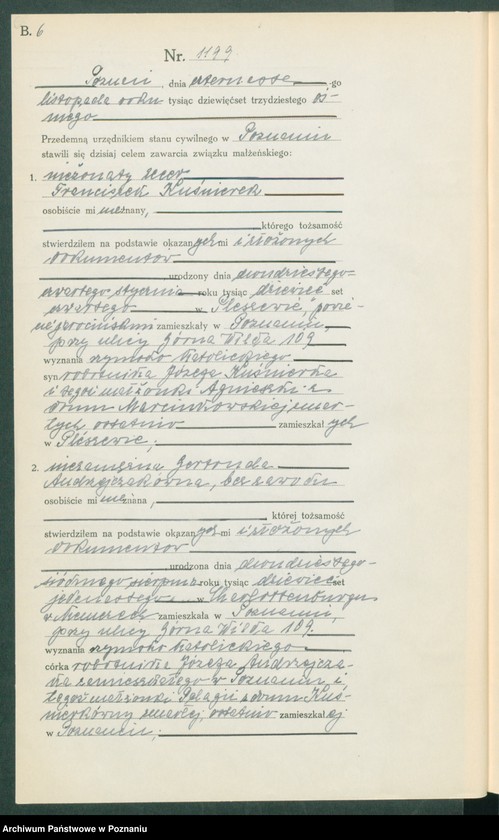 B. 6
Nr. 1199
Poznań, dnia czternastego
listopada roku tysiąc dziewięćset trzydziestego ós-
mego
Przedemną urzędnikiem stanu cywilnego w Poznaniu
stawili się dzisiaj celem zawarcia związku małżeńskiego:
1. nieżonaty
Franciszek Kuśnierek
osobiście mi nieznany,
którego tożsamość
stwierdziłem na podstawie okazanych mi i złożonych
dokumentów
urodzony dnia dwudziestego-
czwartego stycznia roku tysiąc dziewięćset
czwartego w Pleszewie, powie-
cie jarocińskim zamieszkały w Poznaniu,
przy ulicy Górna Wilda 109
wyznania rzymsko katolickiego
syn robotnika Józefa Kuśnierka
i tegoż małżonki Agnieszki z
domu Marcinkowskiej zmar-
łych, ostatnio zamieszkałych
w Pleszewie;
2. niezamężna Gertruda
Andrzejczakówna, bez zawodu
osobiście mi nieznana,
której tożsamość
stwierdziłem na podstawie okazanych mi i złożonych
dokumentów
urodzona dnia dwudziestego-
siódmego sierpnia roku tysiąc dziewięćset
jedenastego w Charlottenburgu
w Niemczech zamieszkała w Poznaniu,
przy ulicy Górna Wilda 109.
wyznania rzymsko katolickiego
córka robotnika Józefa Andrzejcza-
ka zamieszkałego w Poznaniu i
tegoż małżonki Pelagii z domu Kuś-
nierkówny zmarłej, ostatnio zamieszkałej
w Poznaniu;
Archiwum Państwowe w Poznaniu